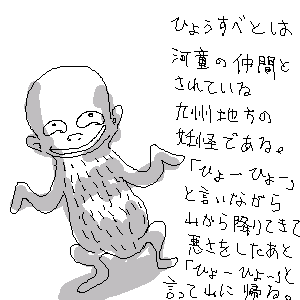 ひょうすべとは
河童の仲間と
されている
九州地方の
妖怪である。
「ひょーひょー」
と言いながら
山から降りてきて
悪さをしたあと
「ひょーひょー」と
言って山に帰る。